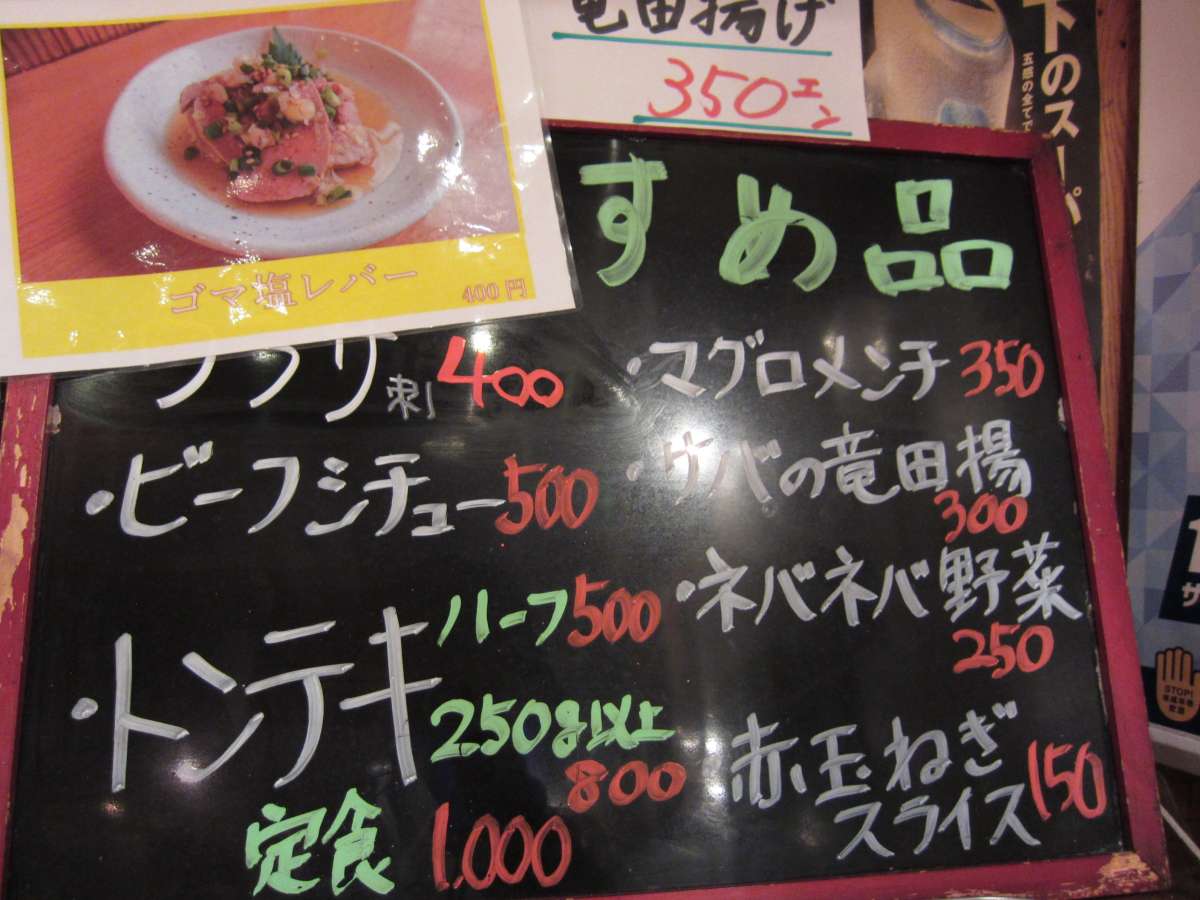 竜田揚げ
350エン
下のスーパ
五感の全てで
ゴマ塩レバー
400円
すめ品
刺 400
・ビーフシチュー 500
・トンテキ
ハーフ 500
250g以上
800
定食 1,000
・マグロメンチ 350
・サバの竜田揚
300
・ネバネバ野菜
250
赤玉ねぎ
スライス 150
STOP!